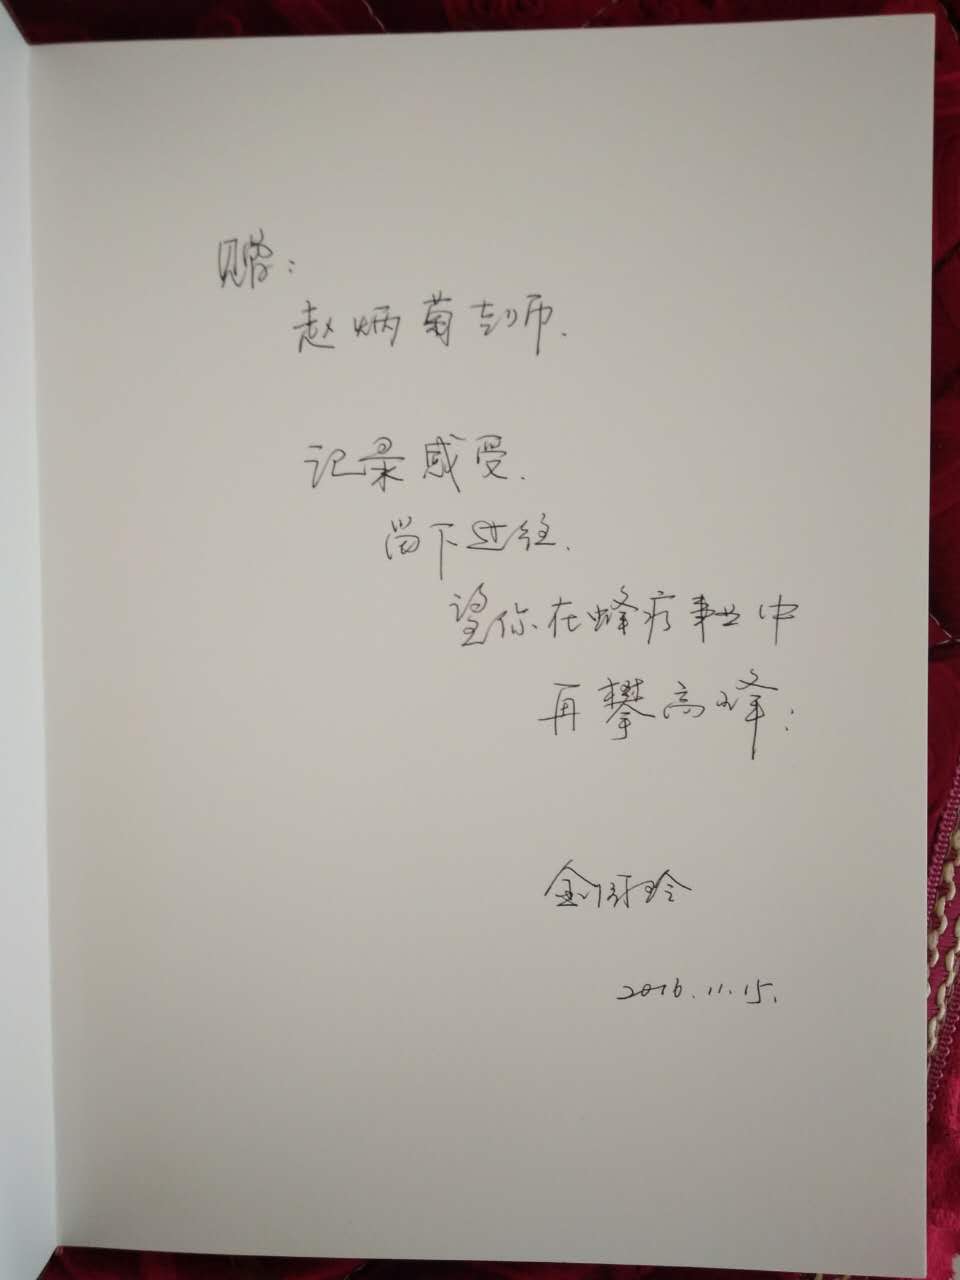 赠:
赵炳菊老师.
记录感受.
留下过往.
望你在蜂疗事业中
再攀高峰:
金
2016.11.15.